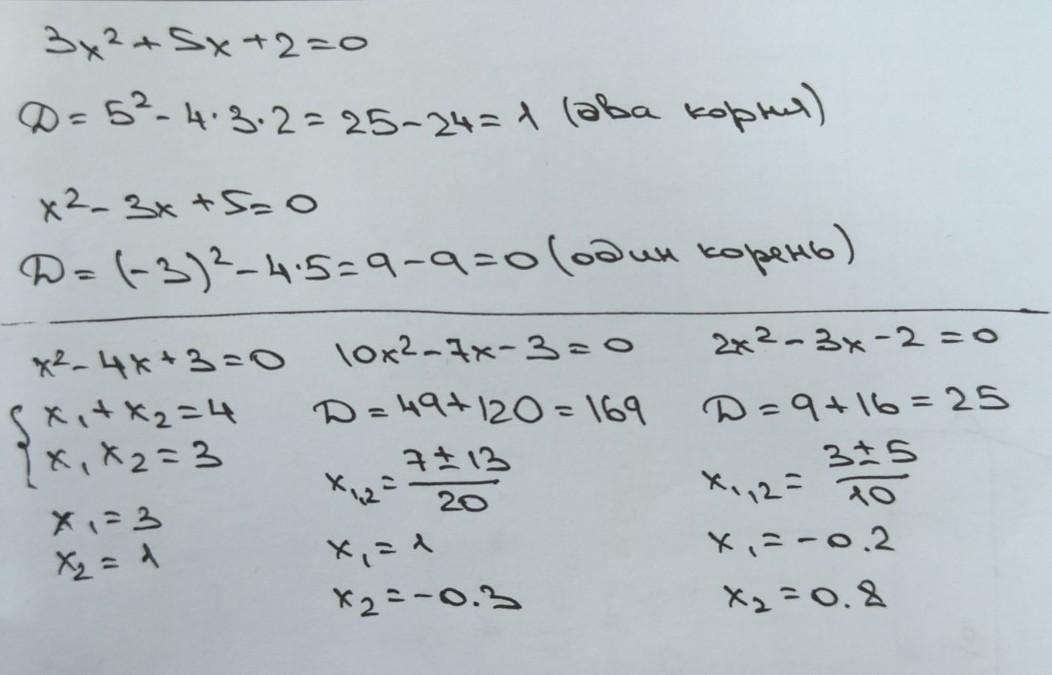 3x²+5x+2=0
D=5²-4·3·2=25-24=1 (два корня)
x²-3x+5=0
D=(-3)²-4·5=9-9=0 (один корень)
x²-4x+3=0
{x₁+x₂=4
x₁x₂=3
x₁=3
x₂=1
10x²-7x-3=0
D=49+120=169
x₁,₂=(7±13)/20
x₁=1
x₂=-0.3
2x²-3x-2=0
D=9+16=25
x₁,₂=(3±5)/10
x₁=-0.2
x₂=0.8